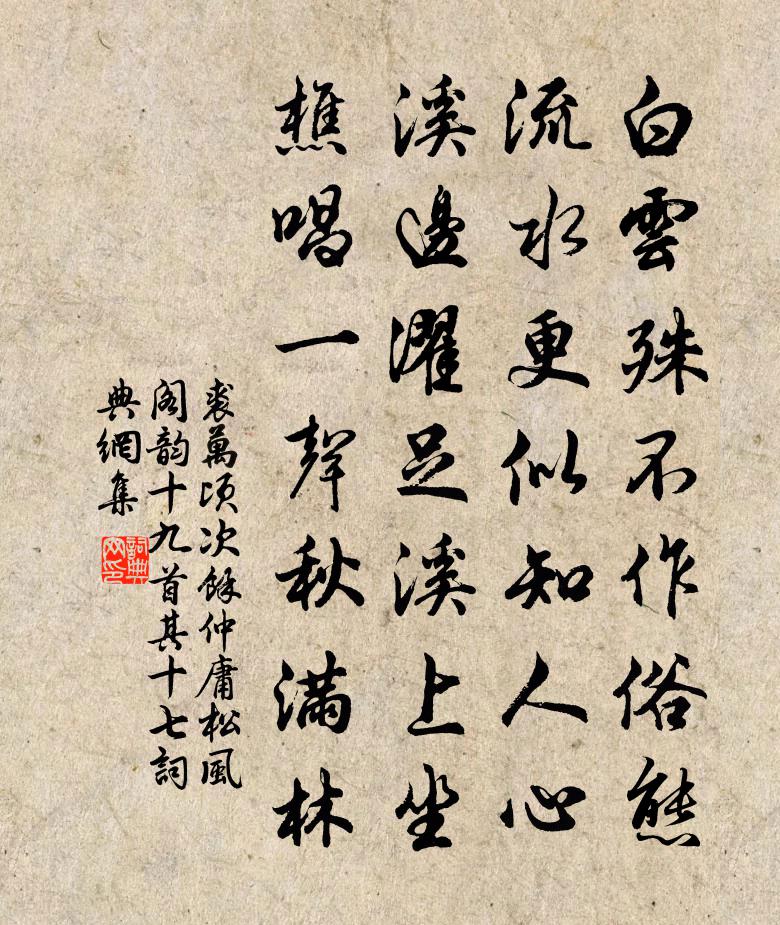 白雲殊不作俗態
流水更似知人心
溪邊濯足溪上坐
樵唱一聲秋滿林
裘萬頃次餘仲庸松風
閣韵十九首其十七詞
典網集
詞典
網印